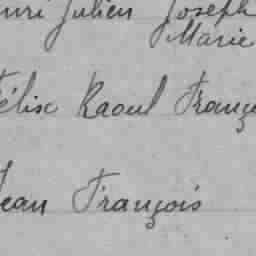 Julien Joseph
Marie
Félix Raoul Franço
Jean François